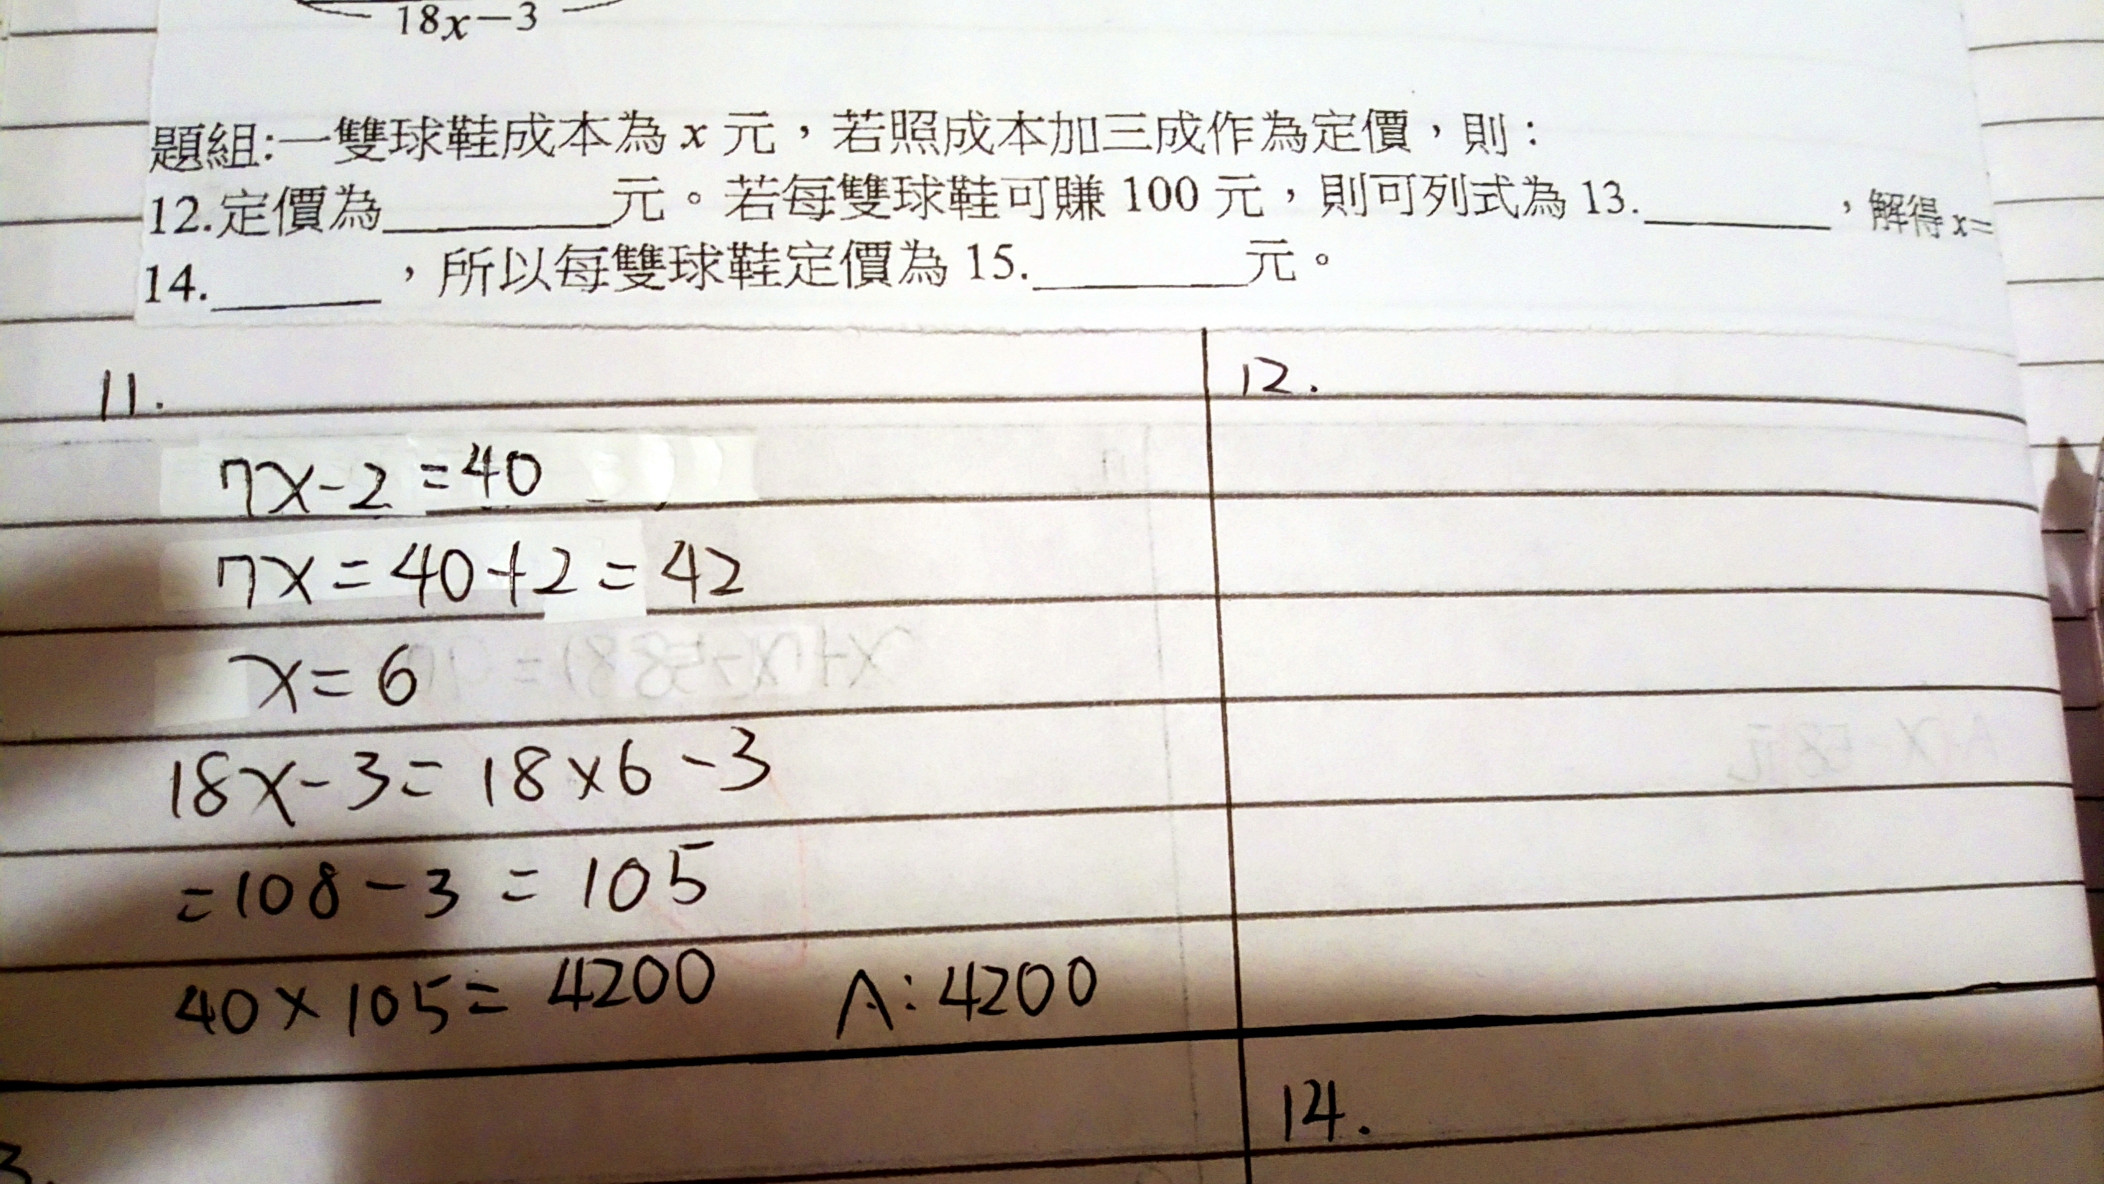 18x−3
題組:一雙球鞋成本為 x 元，若照成本加三成作為定價，則：
12.定價為________元。若每雙球鞋可賺 100 元，則可列式為 13.________，解得 x=
14.______，所以每雙球鞋定價為 15.________元。
11.
12.
7x-2=40
7x=40+2=42
x=6
18x-3=18×6-3
=108-3=105
40×105=4200 A:4200
14.
3.